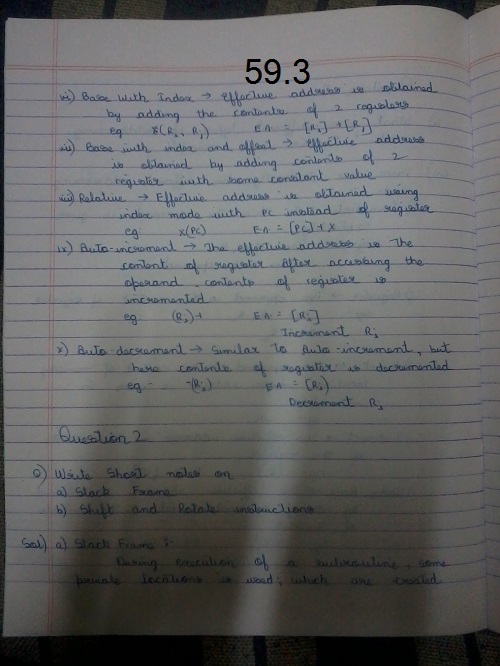 59.3
vi) Base with Index → Effective address is obtained
by adding the contents of 2 registers
eg (Ri, Rj) EA = [Ri] + [Rj]
vii) Base with index and offset → Effective address
is obtained by adding contents of 2
register with some constant value
viii) Relative → Effective address is obtained using
index mode with PC instead of register
eg X(PC) EA = [PC] + X
ix) Auto-increment → The effective address is The
content of register After accessing the
operand, contents of register is
incremented
eg (Ri)+ EA = [Ri]
Increment Ri
x) Auto decrement → Similar To Auto-increment, but
here contents of register is decremented
eg - -(Ri) EA = [Ri)
Decrement Ri
Question 2
Q) Write Short notes on
a) Stack Frame
b) Shift and Rotate instructions
Sol) a) Stack Frame :-
During execution of a subroutine, some
private locations is used, which are created